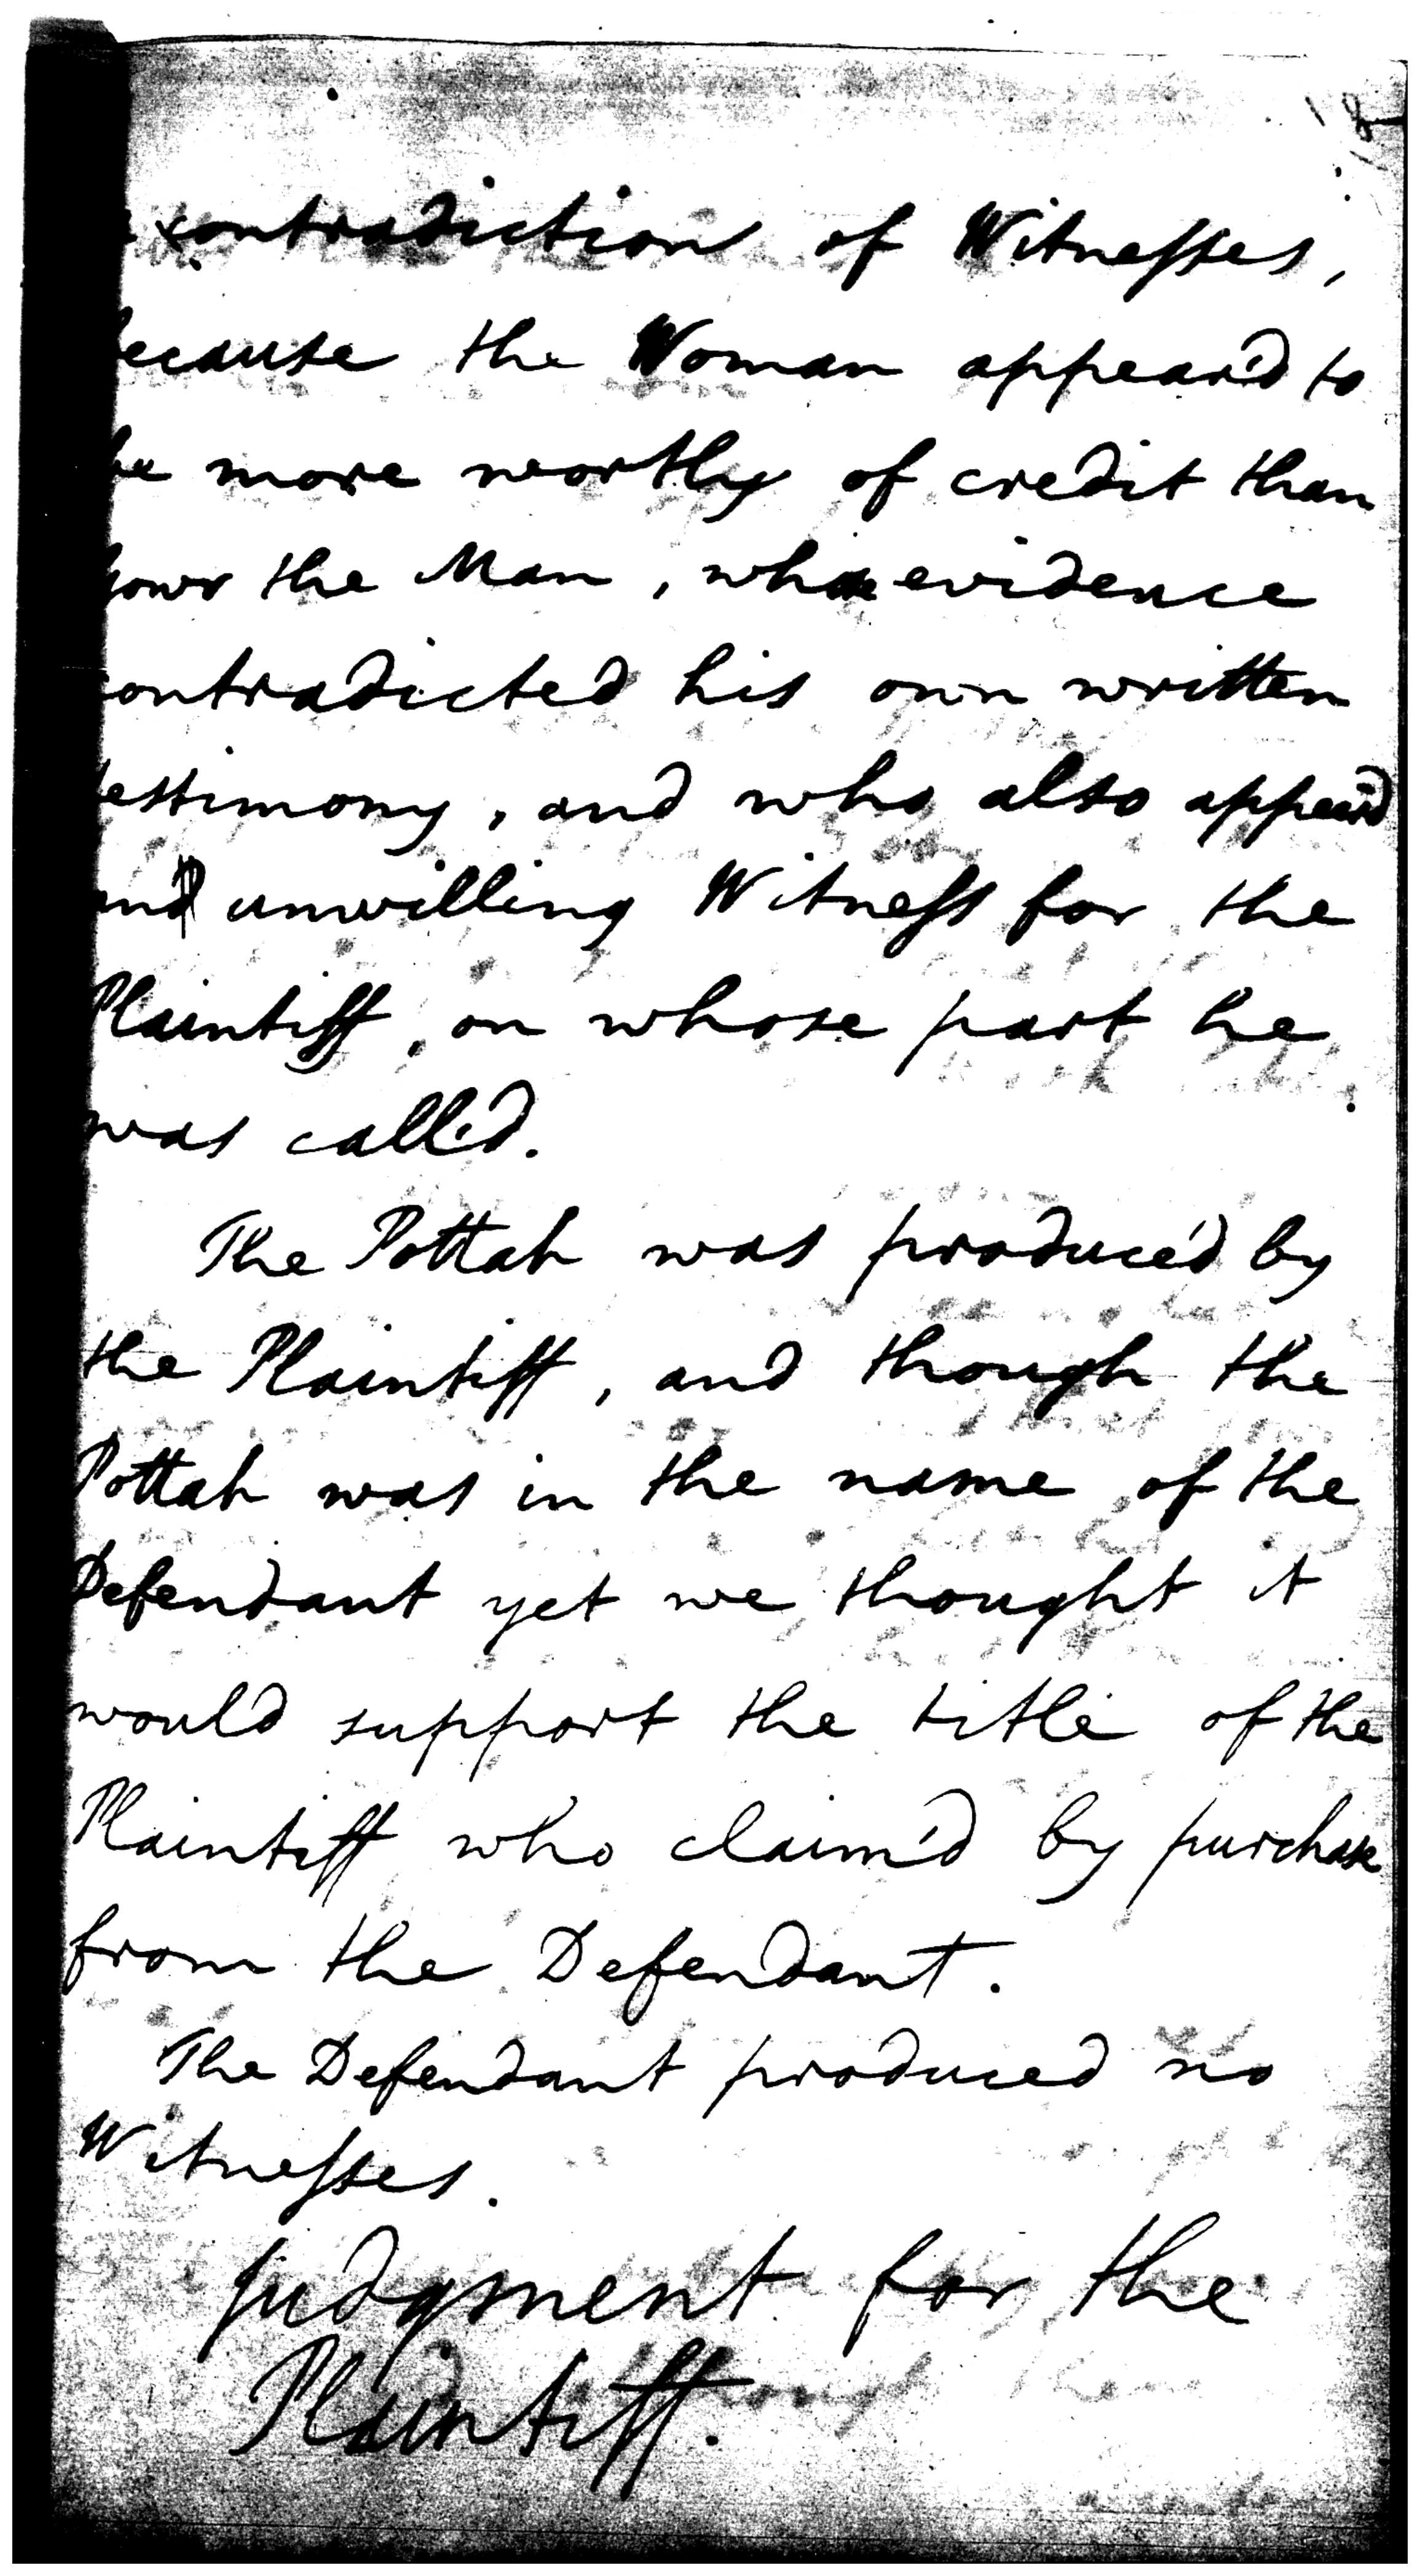 contradiction of Witnesses,
because the Woman appear'd to
be more worthy of credit than
the Man, whose evidence
contradicted his own written
testimony, and who also appear'd
and unwilling Witness for the
Plaintiff, on whose part he
was call'd.
The Pottah was produc'd by
the Plaintiff, and though the
Pottah was in the name of the
Defendant yet we thought it
would support the title of the
Plaintiff who claim'd by purchase
from the Defendant.
The Defendant produced no
Witnesses.
Judgment for the
Plaintiff.